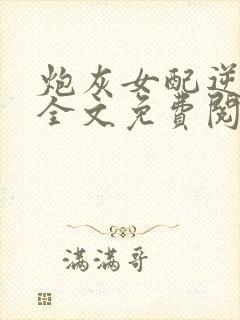 炮灰女配逆
全文免費閱
满满哥